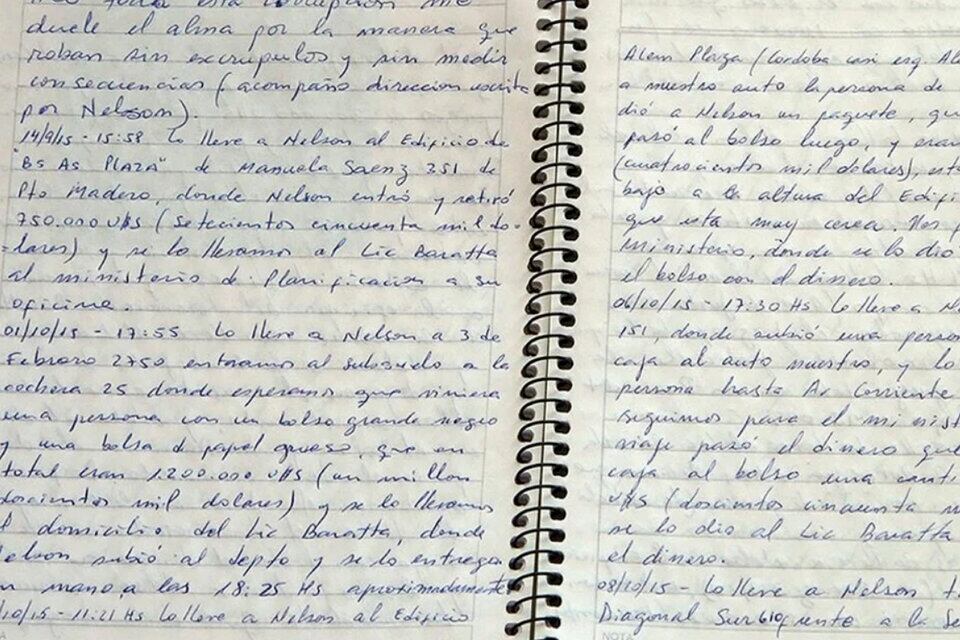 toda esta corrupcion me
duele el alma por la manera que
roban sin excrupulos y sin medir
consecuencias (acompaño direccion escrita
por Nelson).
14/9/15 - 15:58 Lo lleve a Nelson al Edificio de
"Bs As PLAZA" de Manuela Saenz 351 de
Pto Madero, donde Nelson entró y retiró
750.000 U$S (setecientos cincuenta mil do-
-lares) y se lo llevamos al Lic Baratta
al ministerio de Planificacion a su
oficina.
01/10/15 - 17:55 Lo lleve a Nelson a 3 de
Febrero 2750 entramos al subsuelo a la
cochera 25 donde esperamos que viniera
una persona con un bolso grande negro
y una bolsa de papel grueso, que en
total eran 1.200.000 U$S (un millon
doscientos mil dolares) y se lo llevamos
l domicilio del Lic Baratta, donde
elson subió al depto y se lo entregó
n mano a las 18:25 Hs aproximadamente
/10/15 - 11:21 Hs Lo lleve a Nelson al Edificio
Alem Plaza (Cordoba casi esq Al
a nuestro auto la persona de
dió a Nelson un paquete, qu
pasó al bolso luego, y eran
(cuatrocientos mil dolares), est
bajó a la altura del Edifi
que esta muy cerca. Nos
ministerio, donde se lo dio
el bolso con el dinero.
06/10/15 - 17:30 Hs Lo lleve a N
151, donde subió una person
caja al auto nuestro, y lo
persona hasta Av Corriente
seguimos para el minist
viaje pasó el dinero que
caja al bolso una canti
U$S (doscientos cincuenta m
se lo dio al Lic Baratta
el dinero.
08/10/15 - Lo lleve a Nelson
Diagonal Sur 610 frente a la Se
NOTA